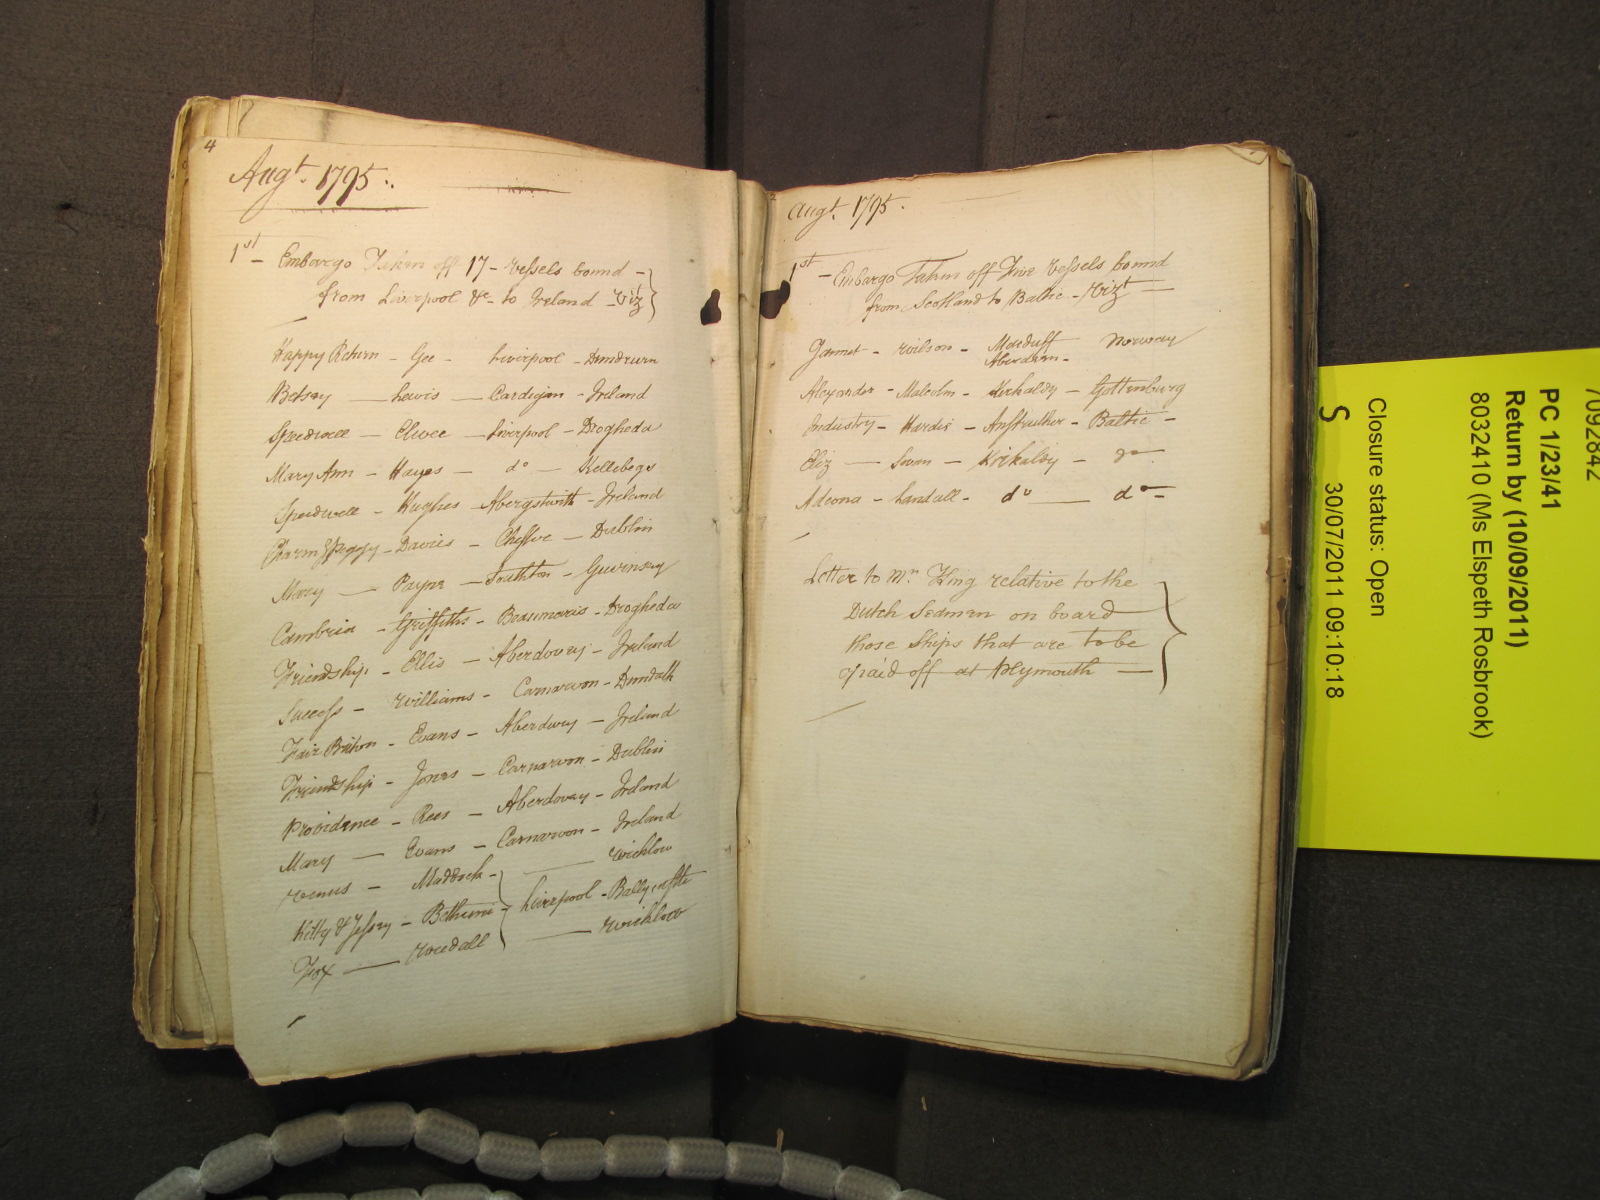 4
Augt. 1795.
1st - Embargo Taken off 17 - Vessels bound -
from Liverpool &c - to Ireland - Vizt
Happy Return - Gee - Liverpool - Dundrum
Betsey - Lewis - Cardigan - Ireland
Speedwell - Elwee - Liverpool - Drogheda
Mary Ann - Hayes - do - Killebegs
Speedwell - Hughes - Abergstwith - Ireland
Charmg Peggy - Davies - Chester - Dublin
Mary - Payne - Southton - Guernsey
Cambria - Griffiths - Beaumaris - Drogheda
Friendship - Ellis - Aberdovey - Ireland
Success - Williams - Carnarvon - Dundalk
Fair Briton - Evans - Aberdovey - Ireland
Friendship - Jones - Carnarvon - Dublin
Providence - Rees - Aberdovey - Ireland
Mary - Evans - Carnarvon - Ireland
Venus - Maddock - Wicklow
Kitty & Jessey - Bethune - Liverpool -
Fox - Wicklow
Augt. 1795.
1st - Embargo Taken off Five Vessels bound
from Scotland to Baltic - Vizt
Gannet - Wilson - Macduff Norway
Aberdeen -
Alexander - Malcolm - Kirkaldy - Gottenburg
Industry - Hardie - Anstruther - Baltic -
Eliz - Swan - Kirkaldy - do
Adeona - Landall - do - do -
Letter to Mr. King relative to the
Dutch Seamen on board
those Ships that are to be
paid off at Plymouth -
7092842
PC 1/23/41
Return by (10/09/2011)
8032410 (Ms Elspeth Rosbrook)
Closure status: Open
S 30/07/2011 09:10:18